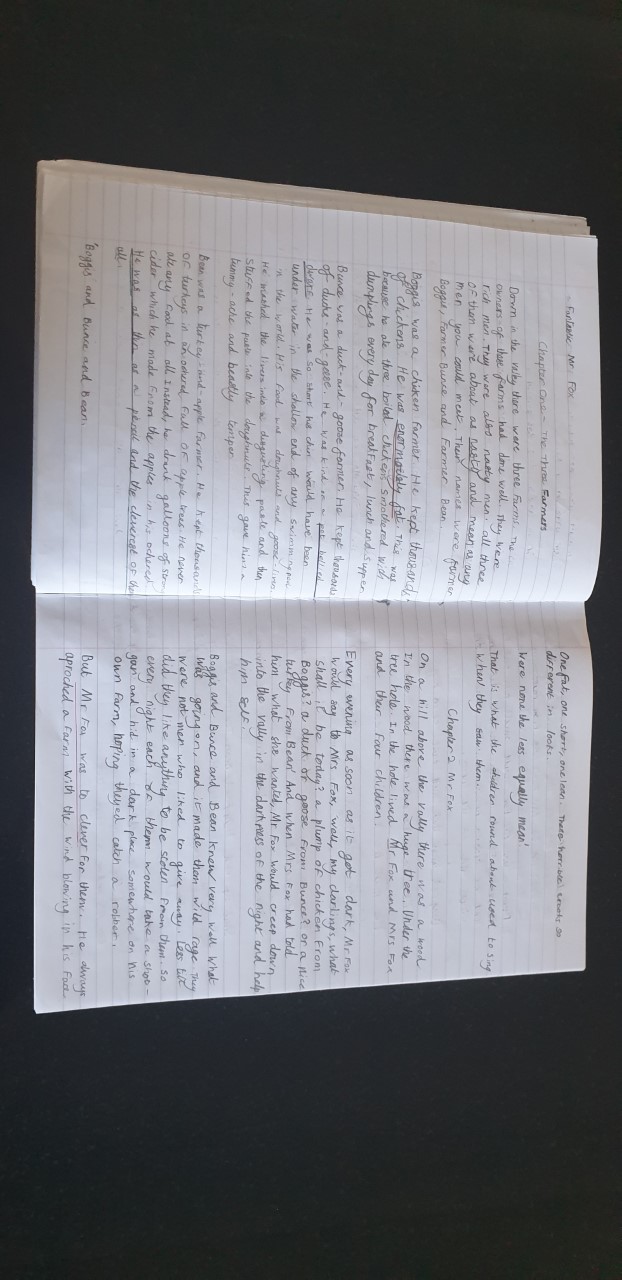 Fantastic Mr. Fox
Chapter One - The Three Farmers
Down in the vally there were three farms. The
owners of these farms had done well. They were
rich men. They were also nasty men. all three
of them were about as nasty and mean as any
men you could meet. Their names were farmer
Boggis, Farmer Bunce and Farmer Bean.
Boggis was a chicken farmer. He kept thousands
of chickens. He was enormously fat. This was
because he ate three boiled chickens smothered with
dumplings every day for breakfast, lunch and supper.
Bunce was a duck-and-goose farmer. He kept thousands
of ducks-and-geese. He was kind of a pot bellied
dwarf. He was so short his chin would have been
under water in the shallow end of any swimming pool
in the world. His food was doughnuts and goose livers.
He mashed the livers into a disgusting paste and then
stuffed the paste into the doughnuts. This gave him a
tummy-ache and beadly temper.
Bean was a turkey-and-apple farmer. He kept thousands
of turkeys in an ochored full of apple trees. He never
ate any food at all. Instead, he drank galloons of
cider which he made from the apples in his ochered
He was as thin as a pencil and the cleverest of them
all.
'Boggis and Bunce and Bean.
One fat, one short, one lean. These horrible crooks so
different in looks
were none the less equally mean'
That is what the children round about used to sing
when they saw them.
Chapter 2 Mr Fox
On a hill above the vally there was a wood
In the wood there was a huge tree. Under the
tree hole. In the hole lived Mr Fox and Mrs Fox
and their four children.
Every evening as soon as it got dark, Mr Fox
would say to Mrs Fox, well, my darlings, what
shall it be today? a plump of chicken from
Boggis? a duck or goose from Bunce? or a nice
turkey from Bean? And when Mrs Fox had told
him what she wanted, Mr Fox would creep down
into the vally in the darkness of the night and help
him self,
Boggis and Bunce and Bean knew very well what
was going on and it made them wild rage. They
were not men who liked to give away. Less still
did they like anything to be stolen from them. so
every night each of them would take a shot-
gun and hid in a dark place somewhere on his
own farm, hoping theyed catch a robber.
But Mr Fox was to clever for them. He always
aproched a farm with the wind blowing in his face